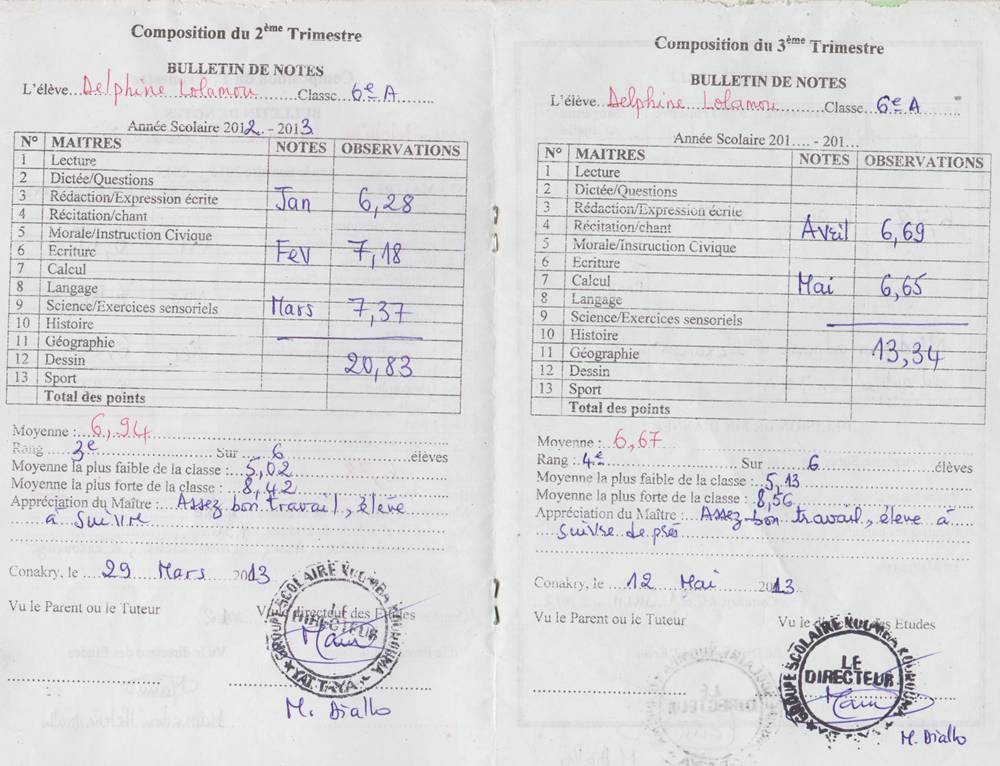 Composition du 2ème Trimestre
BULLETIN DE NOTES
L'élève...Delphine Lolamou...Classe..6e A.......
Année Scolaire 2012..-2013
N° MAITRES NOTES OBSERVATIONS
1 Lecture
2 Dictée/Questions
3 Rédaction/Expression écrite Jan 6,28
4 Récitation/chant
5 Morale/Instruction Civique
6 Ecriture Fev 7,18
7 Calcul
8 Langage
9 Science/Exercices sensoriels Mars 7,37
10 Histoire
11 Géographie
12 Dessin 20,83
13 Sport
Total des points
Moyenne :...6,94
Rang ......3e...... Sur ......6......élèves
Moyenne la plus faible de la classe :...5,02
Moyenne la plus forte de la classe :...8,42
Appréciation du Maître :...Assez bon travail, élève
à suivre
Conakry, le ....29 Mars.... 2013
Vu le Parent ou le Tuteur Vu le directeur des Etudes
GROUPE SCOLAIRE KOUMBA KOUROUMA
LE
DIRECTEUR
YATTAYA
M. Diallo
Composition du 3ème Trimestre
BULLETIN DE NOTES
L'élève...Delphine Lolamou...Classe..6e A
Année Scolaire 201....-201...
N° MAITRES NOTES OBSERVATIONS
1 Lecture
2 Dictée/Questions
3 Rédaction/Expression écrite
4 Récitation/chant Avril 6,69
5 Morale/Instruction Civique
6 Ecriture
7 Calcul Mai 6,65
8 Langage
9 Science/Exercices sensoriels
10 Histoire
11 Géographie 13,34
12 Dessin
13 Sport
Total des points
Moyenne :..6,67
Rang :.4e...... Sur ......6......élèves
Moyenne la plus faible de la classe :.5,13
Moyenne la plus forte de la classe :.8,56
Appréciation du Maître :..Assez bon travail, élève à
suivre de près
Conakry, le ....12 Mai.... 2013
Vu le Parent ou le Tuteur Vu le directeur des Etudes
GROUPE SCOLAIRE KOUMBA KOUROUMA
LE
DIRECTEUR
M. Diallo